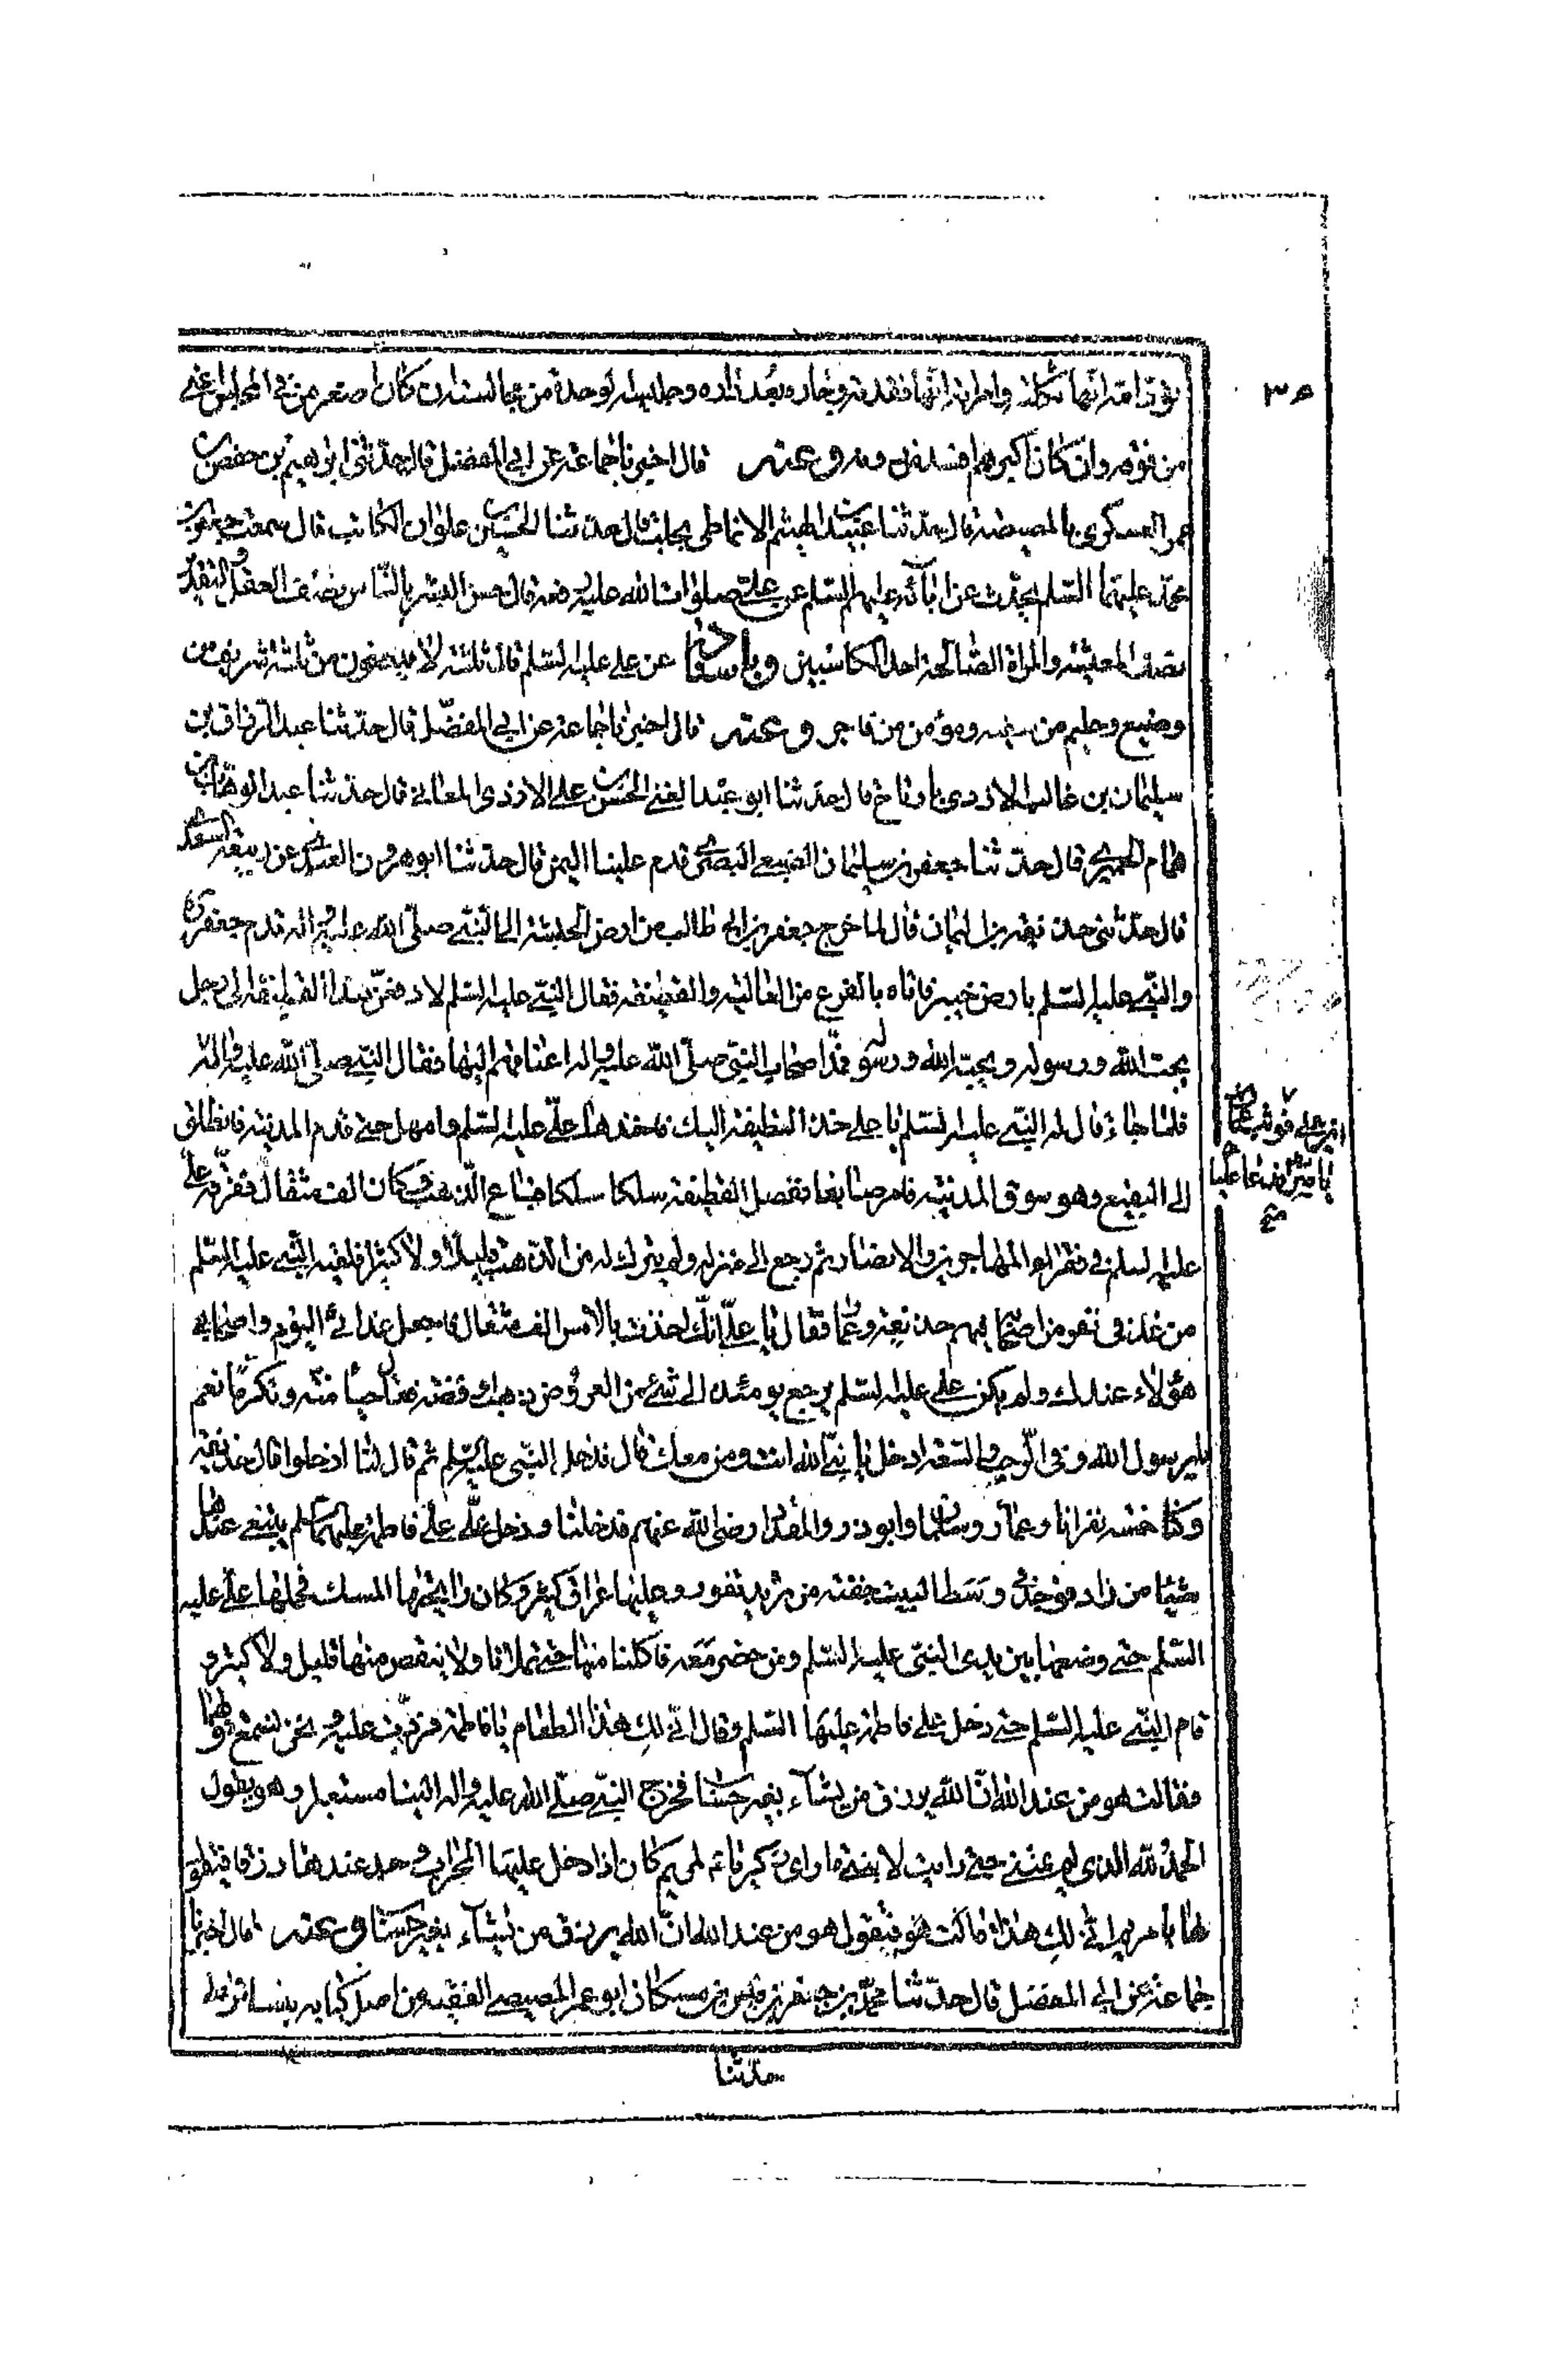 من فوقه وان كان اكبرهم افسد من دونه وعنه قال اخبرنا جماعة عن ابي المفضل قال حدثني ابراهيم بن حفص بن
عمر العسكري بالمصيصة قال حدثنا عبيد بن الهيثم الانماطي بحلب قال حدثنا الحسين بن علوان الكاتب قال سمعت جعفر بن
محمد عليهما السلم يحدث عن آبائه عليهم السلم عن علي صلوات الله عليه رفعه قال حسن البشر بالناس نصف العقل والتقدير
نصف المعيشة والمراة الصالحة احد الكاسبين وباسناده عن علي عليه السلم قال ثلثة لا ينتصفون من ثلثة شريف من
وضيع وحليم من سفيه ومؤمن من فاجر وعنه قال اخبرنا جماعة عن ابي المفضل قال حدثنا عبد الرزاق بن
سليمان بن غالب الازدي بارتاح قال حدثنا ابو عبد الغني الحسن بن علي الازدي المعاني قال حدثنا عبد الوهاب بن
همام الحميري قال حدثنا جعفر بن سليمان الضبعي البصري قدم علينا اليمن قال حدثنا ابو هرون العبدي عن ربيعة السعدي
قال حدثني حذيفة بن اليمان قال لما خرج جعفر بن ابي طالب من ارض الحبشة الى النبي صلى الله عليه واله قدم جعفر ره
والنبي عليه السلم بارض خيبر فاتاه بالفرع من الغالية والقطيفة فقال النبي عليه السلم لادفعن هذه القطيفة الى رجل
يحب الله ورسوله ويحبه الله ورسوله فمد اصحاب النبي صلى الله عليه واله اعناقهم اليها فقال النبي صلى الله عليه واله
فلما جاء قال له النبي عليه السلم يا علي خذ هذه القطيفة اليك فاخذها علي عليه السلم وامهل حتى قدم المدينة فانطلق
الى البقيع وهو سوق المدينة فامر صايغا ففصل القطيفة سلكا سلكا فباع الذهب وكان الف مثقال ففرقه علي
عليه السلم في فقراء المهاجرين والانصار ثم رجع الى منزله ولم يترك له من الذهب قليلا ولا كثيرا فلقيه النبي عليه السلم
من غد في نفر من اصحابه فيهم حذيفة وعمار فقال يا علي انك اخذت بالامس الف مثقال فاجعل غدائي اليوم واصحابي
هؤلاء عندك ولم يكن علي عليه السلم يرجع يومئذ الى شيء من العروض ذهب او فضة فقال حياء منه وتكرما نعم
يا رسول الله وفي الرحب والسعة ادخل يا نبي الله انت ومن معك قال فدخل النبي عليه السلم ثم قال لنا ادخلوا قال حذيفة
وكنا خمسة نفر انا وعمار وسلمان وابو ذر والمقداد رضي الله عنهم فدخلنا ودخل علي على فاطمة عليهما السلم يبتغي عندها
شيئا من زاد فوجد في وسط البيت جفنة من ثريد تفور وعليها عراق كثير وكان رائحتها المسك فحملها علي عليه
السلم حتى وضعها بين يدي النبي عليه السلم ومن حضر معه فاكلنا منها حتى تملانا ولا ينقص منها قليل ولا كثير و
قام النبي عليه السلم حتى دخل على فاطمة عليها السلم وقال انى لك هذا الطعام يا فاطمة فردت عليه ونحن نسمع قولهما
فقالت هو من عند الله ان الله يرزق من يشاء بغير حساب فخرج النبي صلى الله عليه واله الينا مستعبرا وهو يقول
الحمد لله الذي لم يمتني حتى رايت لابنتي ما راى زكريا لمريم كان اذا دخل عليها المحراب وجد عندها رزقا فيقول
لها يا مريم انى لك هذا فتقول هو من عند الله ان الله يرزق من يشاء بغير حساب وعنه قال اخبرنا
جماعة عن ابي المفضل قال حدثنا محمد بن جعفر بن مسكان ابو عمر المصيصي الفقيه من اصل كتابه
حدثنا